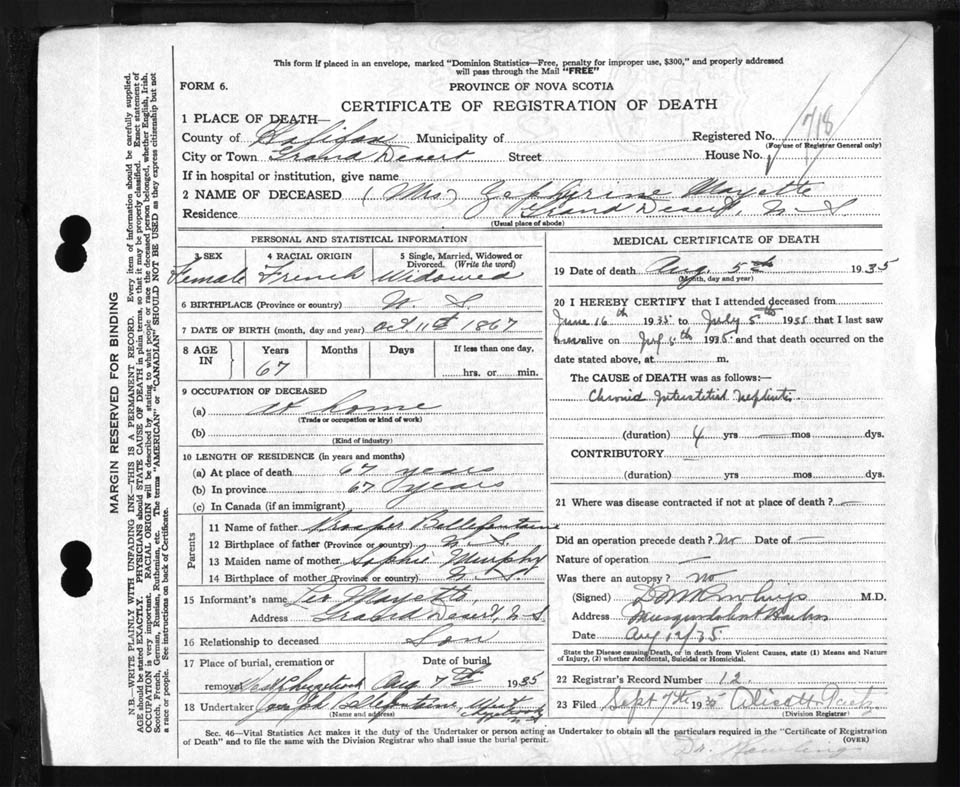 This form if placed in an envelope, marked "Dominion Statistics—Free, penalty for improper use, $300," and properly addressed
will pass through the Mail "FREE"
FORM 6.
PROVINCE OF NOVA SCOTIA
CERTIFICATE OF REGISTRATION OF DEATH
1 PLACE OF DEATH—
County of Halifax Municipality of Registered No. 718
(For use of Registrar General only)
City or Town Grand Desert Street House No.
If in hospital or institution, give name
2 NAME OF DECEASED (Mrs) Zephyrine Mayette
Residence Grand Desert, N. S
(Usual place of abode)
PERSONAL AND STATISTICAL INFORMATION
3 SEX 4 RACIAL ORIGIN 5 Single, Married, Widowed or
Divorced. (Write the word)
Female French Widowed
6 BIRTHPLACE (Province or country) N. S.
7 DATE OF BIRTH (month, day and year) Oct. 11th 1867
8 AGE IN Years Months Days If less than one day,
67 hrs. or min.
9 OCCUPATION OF DECEASED
(a) At home
(Trade or occupation or kind of work)
(b)
(Kind of industry)
10 LENGTH OF RESIDENCE (in years and months)
(a) At place of death 67 years
(b) In province 67 years
(c) In Canada (if an immigrant)
Parents
11 Name of father Bellefontaine
12 Birthplace of father (Province or country) N. S.
13 Maiden name of mother Sophie Murphy
14 Birthplace of mother (Province or country) N. S.
15 Informant's name Leo Mayette
Address Grand Desert, N. S
16 Relationship to deceased Son
17 Place of burial, cremation or Date of burial
removal West Chezzetcook Aug 7th 1935
18 Undertaker Joseph Bellefontaine, West
Chezzetcook
N. S
(Name and address)
MEDICAL CERTIFICATE OF DEATH
19 Date of death Aug. 5th 1935
(Month, day and year)
20 I HEREBY CERTIFY that I attended deceased from
June 16th 1935 to July 5th 1935 that I last saw
her alive on July 5th 1935 and that death occurred on the
date stated above, at m.
The CAUSE of DEATH was as follows:—
Chronic Interstitial Nephritis
(duration) 4 yrs — mos dys.
CONTRIBUTORY
(duration) yrs mos dys.
21 Where was disease contracted if not at place of death? —
Did an operation precede death? No Date of —
Nature of operation —
Was there an autopsy? no
(Signed) Rowlings M.D.
Address Musquodoboit Harbour
Date Aug 12/35
State the Disease causing Death, or in death from Violent Causes, state (1) Means and Nature
of Injury, (2) whether Accidental, Suicidal or Homicidal.
22 Registrar's Record Number 12.
23 Filed Sept 7th 1935
(Division Registrar)
Sec. 46—Vital Statistics Act makes it the duty of the Undertaker or person acting as Undertaker to obtain all the particulars required in the "Certificate of Registration
of Death" and to file the same with the Division Registrar who shall issue the burial permit. (OVER)
Dr. Rowlings
MARGIN RESERVED FOR BINDING
N.B.—WRITE PLAINLY WITH UNFADING INK—THIS IS A PERMANENT RECORD. Every item of information should be carefully supplied.
AGE should be stated EXACTLY. PHYSICIANS should STATE CAUSE OF DEATH in plain terms, so that it may be properly classified. Exact statement of
OCCUPATION is very important. RACIAL ORIGIN will be described by stating to what people or race the deceased person belonged, whether English, Irish,
Scotch, French, German, Russian, Ruthenian, etc. The terms "AMERICAN" or "CANADIAN" SHOULD NOT BE USED as they express citizenship but not
a race or people. See instructions on back of Certificate.